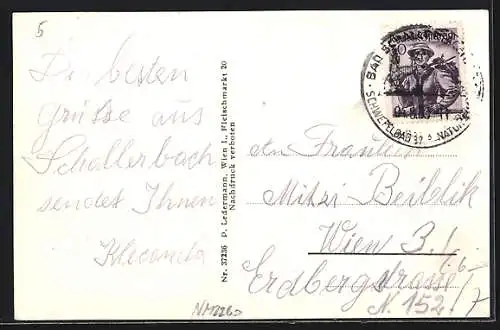 5
Die besten
Grüße aus
Schallerbach
sendet Ihnen
Nr. 37236 P. Ledermann, Wien I., Fleischmarkt 20
Nachdruck verboten
BAD SCHALLERBACH
SCHWEFELBAD 37
An Fräulein
Mitzi
Wien 3.
Erdbergstrasse
N. 152/7